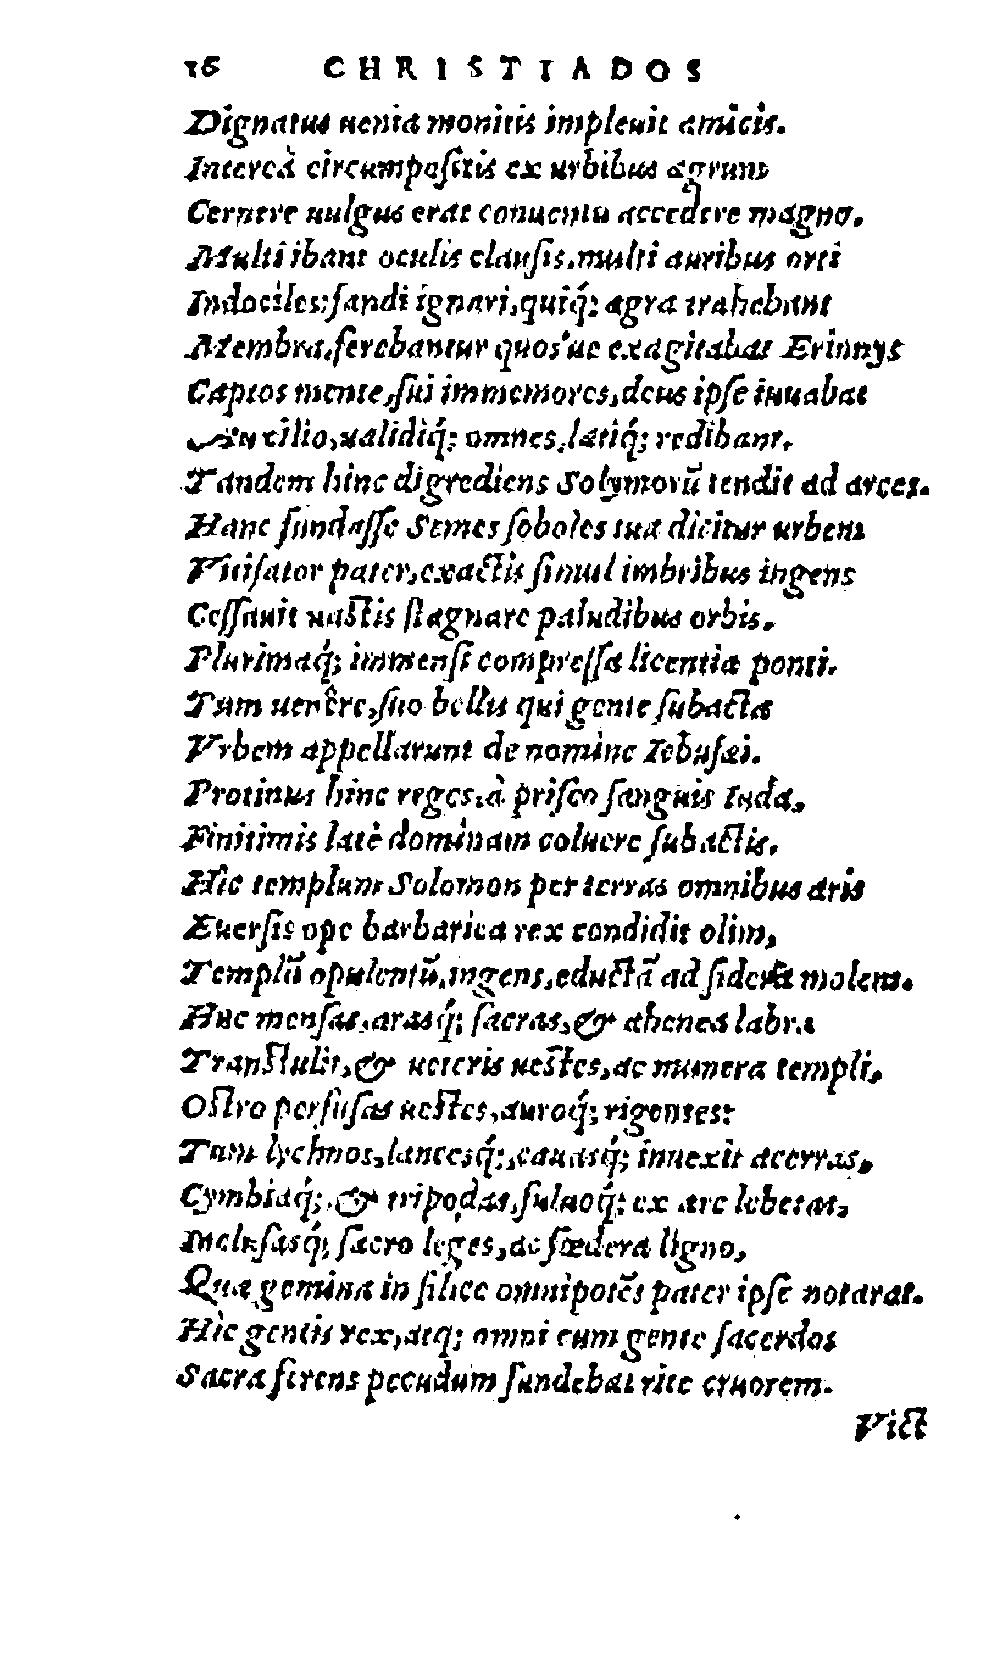 16 CHRISTIADOS
Dignatus uenia monitis impleuit amicis.
Intereà circumpositis ex urbibus agrum
Cernere uulgus erat conuentu accedere magno.
Multi ibant oculis clausis, multi auribus orti
Indociles: fandi ignari, quiq́; agra trahebant
Membra, ferebantur quos'ue exagitabat Erinnys
Captos mente, sui immemores, deus ipse iuuabat
Auxilio, ualidiq́; omnes, lætiq́; redibant.
Tandem hinc digrediens Solymorū tendit ad arces.
Hanc fundasse Semes soboles tua dicitur urbem
Vitisator pater, exactis simul imbribus ingens
Cessauit uastis stagnare paludibus orbis.
Plurimaq́; immensi compressa licentia ponti.
Tum uenêre, suo bello qui gente subacta
Vrbem appellarunt de nomine Iebusæi.
Protinus hinc reges, à prisco sanguis Iuda,
Finitimis latè dominam coluere subactis.
Hîc templum Solomon per terras omnibus aris
Euersis ope barbarica rex condidit olim,
Templū opulentū, ingens, eductā ad sidera molem.
Huc mensas, arasq́; sacras, & ahenea labra
Transtulit, & ueteris uestes, ac munera templi,
Ostro perfusas uestes, auroq́; rigentes:
Tum lychnos, lancesq́;, cauasq́; inuexit acerras,
Cymbiaq́;, & tripodas, fuluoq́; ex ære lebetas,
Inclusasq́; sacro leges, ac fœdera ligno,
Quæ gemina in silice omnipotēs pater ipse notarat.
Hîc gentis rex, atq; omni cum gente sacerdos
Sacra ferens pecudum fundebat rite cruorem.
Vict